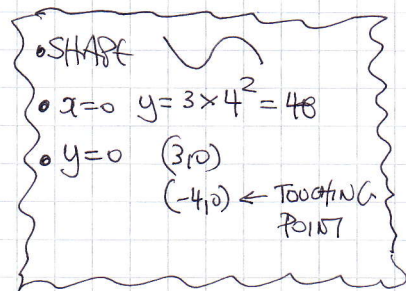 • SHAPE
• x=0 y=3×4²=48
• y=0 (3,0)
(-4,0) ← TOUCHING
POINT